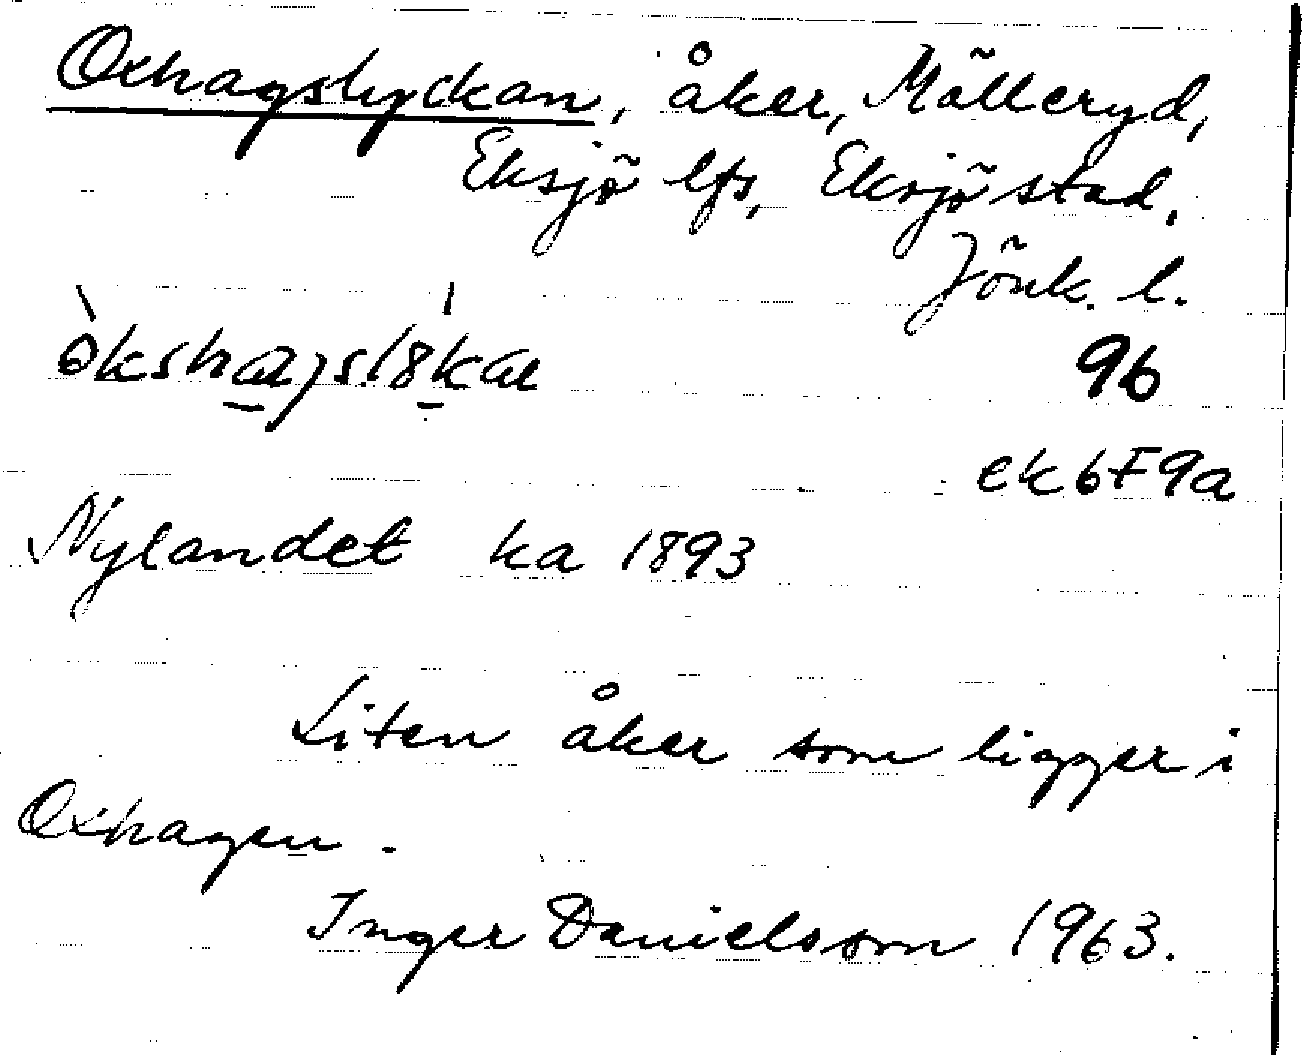 Oxhagslyckan, åker, Mölleryd,
Eksjö lfs, Eksjö stad,
Jönk. l.
96
ek6F9a
Nylandet ka 1893
Liten åker som ligger i
Oxhagen.
Inger Danielsson 1963.